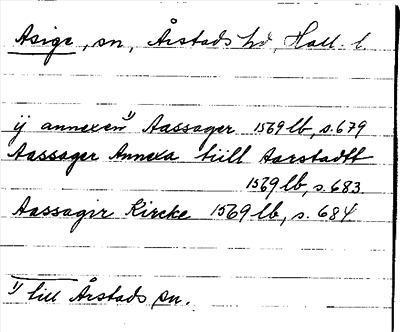 Asige, sn, Årstads hd, Hall. l.
ij annexen¹⁾ Aassager 1569 lb, s. 679
Aassager Annexa tiill Aarstadtt
1569 lb, s. 683.
Aassagir Kircke 1569 lb, s. 684
¹⁾ till Årstads sn.